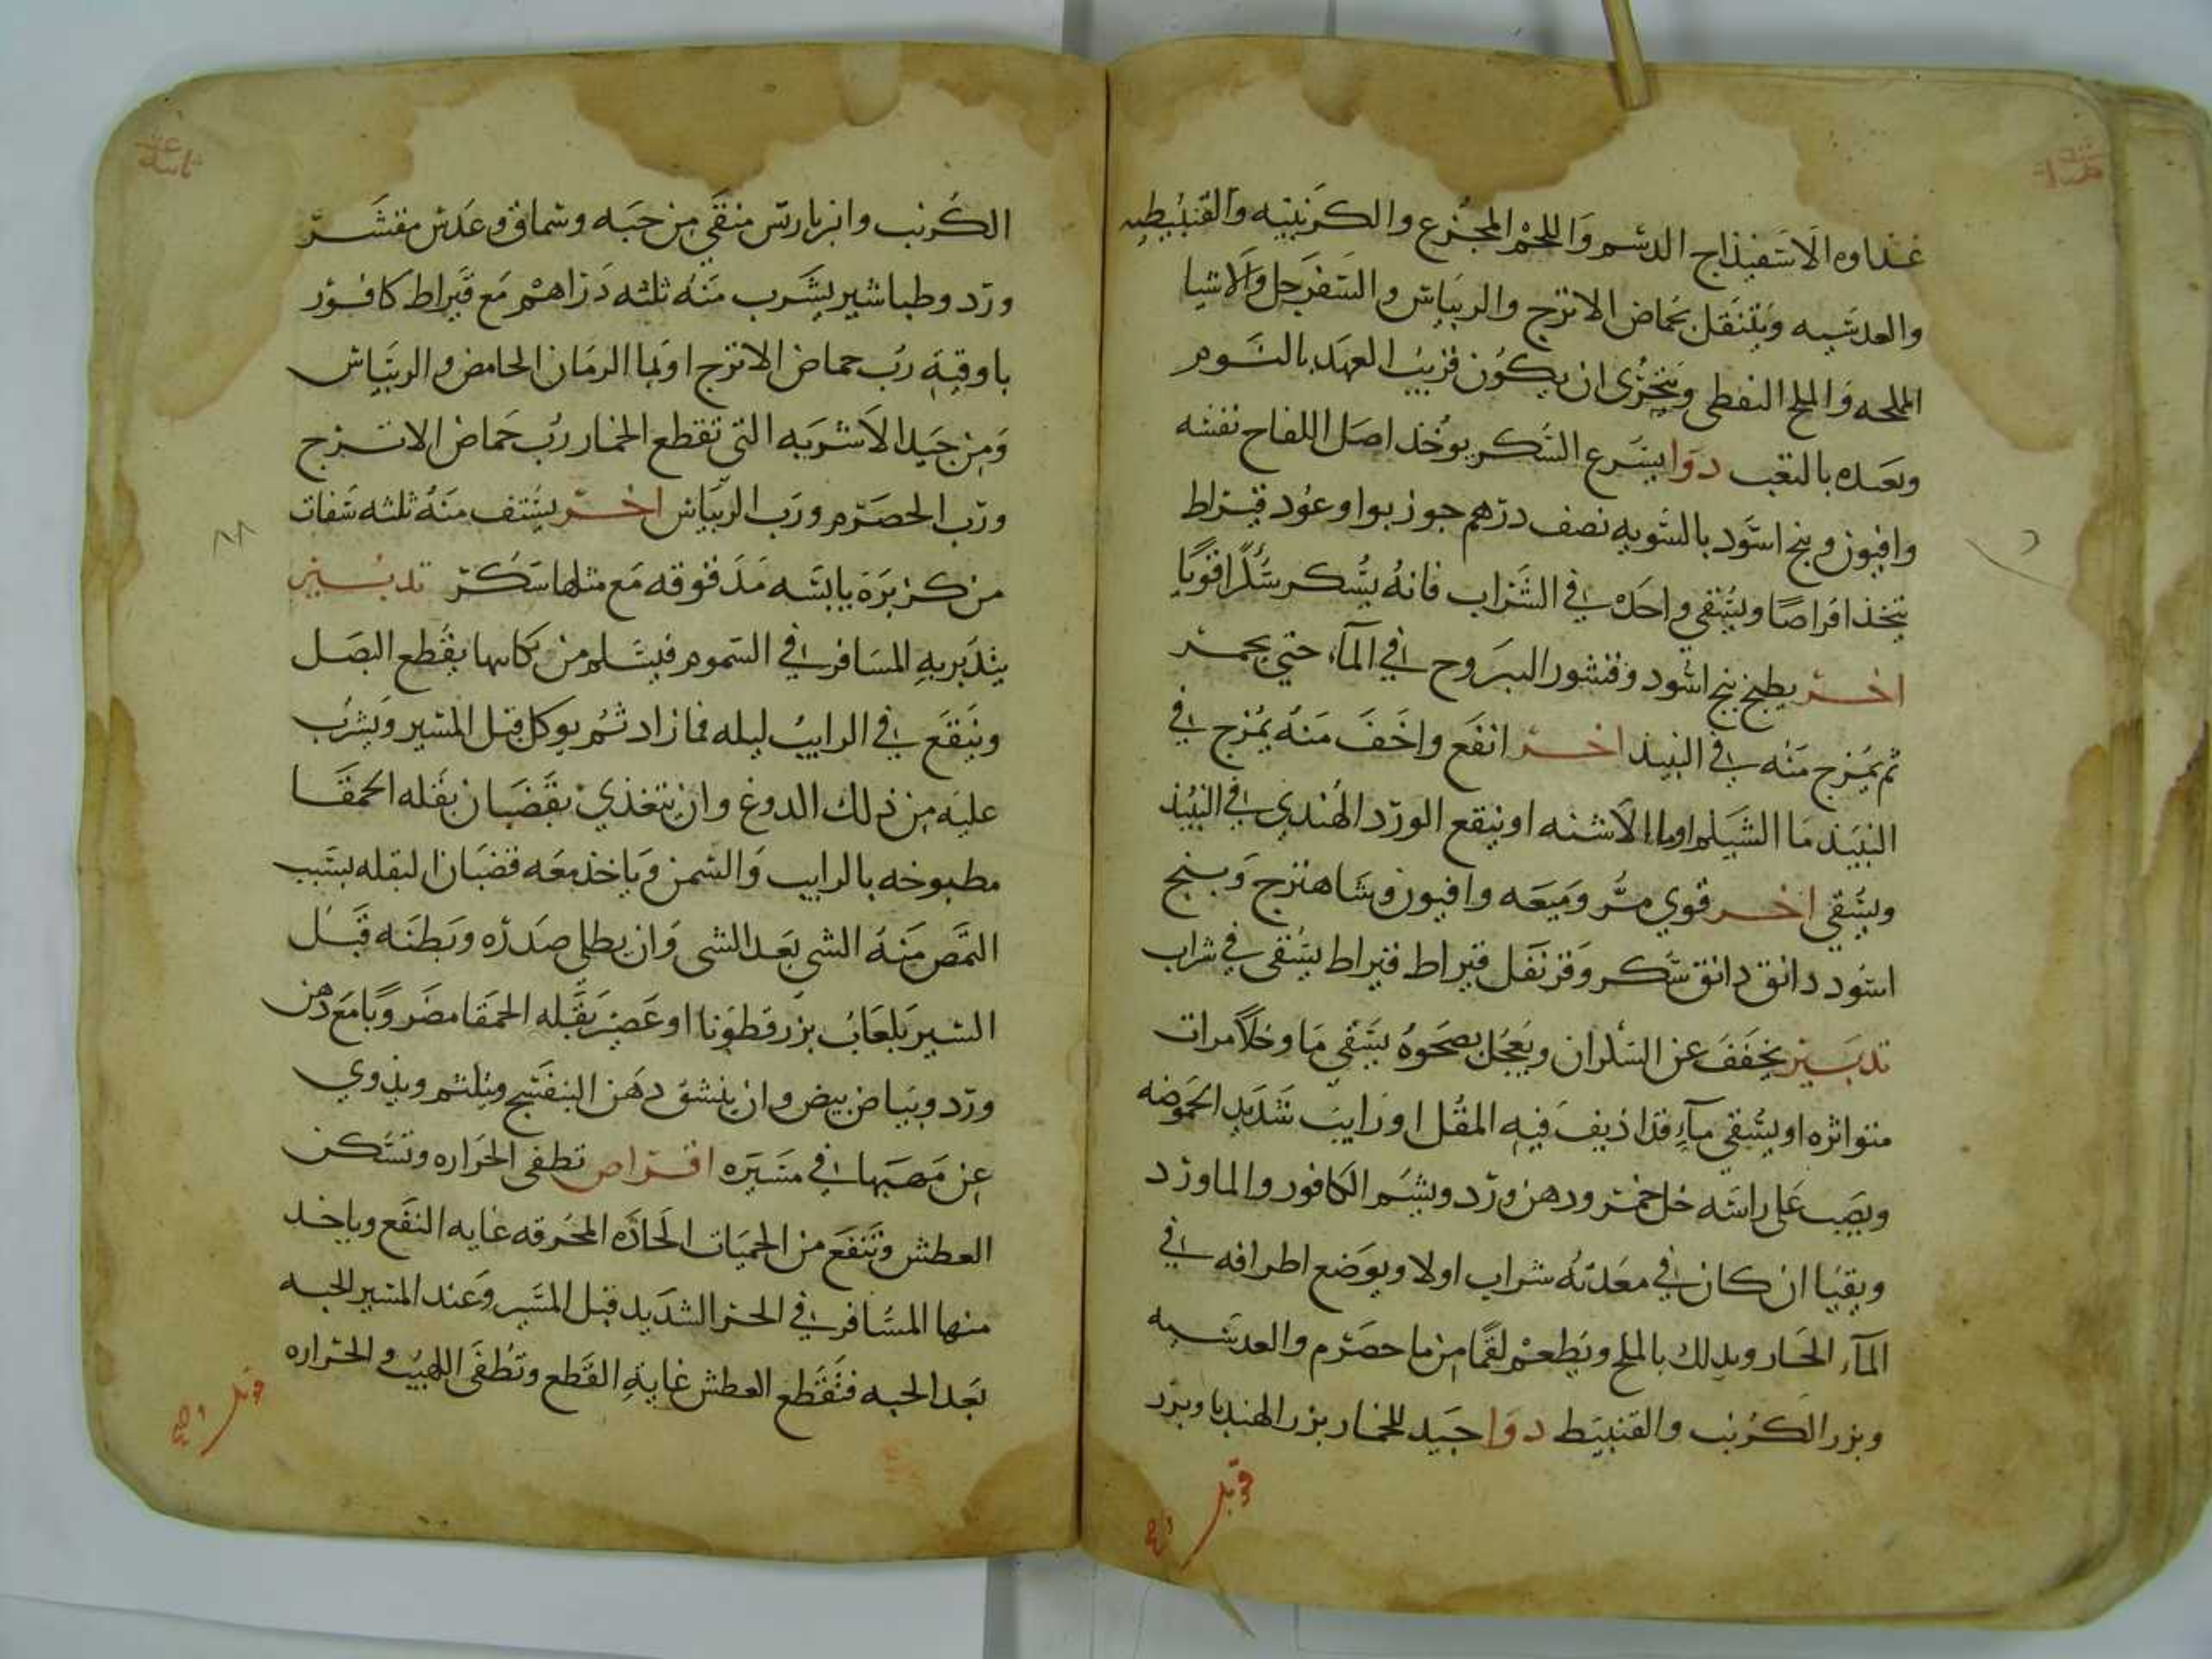 غذاوه الاسفيذاج الدسم واللحم المجزع والكرنبيه والقنبيطيه
والعدسيه ويتنقل بحماض الاترج والريباس والسفرجل والاشيا
المملحه والملح النفطي ويتحرى ان يكون قريب العهد بالنوم
وبعده بالتعب دوا يسرع السكر يوخذ اصل اللفاح نفسه
وافيون وبنج اسود بالسويه نصف درهم جوز بوا وعود قيراط
يتخذ اقراصا ويسقي واحده في الشراب فانه يسكر سكرا قويا
اخر يطبخ بنج اسود وقشور اليبروح في المآء حتي يحمر
ثم يمزج منه في النبيذ اخر انفع واخف منه يمزج في
النبيذ ما الشيلم او ما الاشنه او ينقع الورد الهندي في النبيذ
ويسقي اخر قوي مر وميعه وافيون وشاهترج وبنج
اسود دانق دانق سكر وقرنفل قيراط قيراط يسقي في شراب
تدبير يخفف عن السكران ويعجل بصحوه يسقي ما وخلا مرات
متواتره او يسقي مآء قد اذيف فيه المقل او رايب شديد الحموضه
ويصب على راسه خل خمر ودهن ورد ويشم الكافور والماورد
ويقيا ان كان في معدته شراب اولا ويوضع اطرافه في
المآء الحار ويدلك بالملح ويطعم لقما من ما حصرم والعدسيه
وبزر الكرنب والقنبيط دوا جيد للخمار بزر الهندبا وبزر
قوبل وصح
الكرنب وانبرباريس منقي من حبه وسماق وعدس مقشر
ورد وطباشير يشرب منه ثلثه دراهم مع قيراط كافور
باوقيه رب حماض الاترج او بما الرمان الحامض والريباس
ومن جيد الاشربه التي تقطع الخمار رب حماض الاترج
ورب الحصرم ورب الريباس اخر يستف منه ثلثه سفات
من كزبره يابسه مدقوقه مع مثلها سكر تدبير
يتدبر به المسافر في السموم فيسلم من نكايتها يقطع البصل
وينقع في الرايب ليله فما زاد ثم يوكل قبل المسير ويشرب
عليه من ذلك الدوغ وان يتغذي بقضبان بقله الحمقا
مطبوخه بالرايب والسمن وياخذ معه قضبان البقله بسبب
التمص منه الشي بعد الشي وان يطلي صدره وبطنه قبل
السير بلعاب بزرقطونا او عصير بقله الحمقا مضروبا مع دهن
ورد وبياض بيض وان ينشق دهن البنفسج ويلثم ويذوي
عن مهبها في مسيره اقراص تطفي الحراره وتسكن
العطش وتنفع من الحميات الحاده المحرقه غايه النفع وياخذ
منها المسافر في الحر الشديد قبل المسير وعند المسير الحبه
بعد الحبه فتقطع العطش غايه القطع وتطفي اللهيب والحراره
قوبل وصح